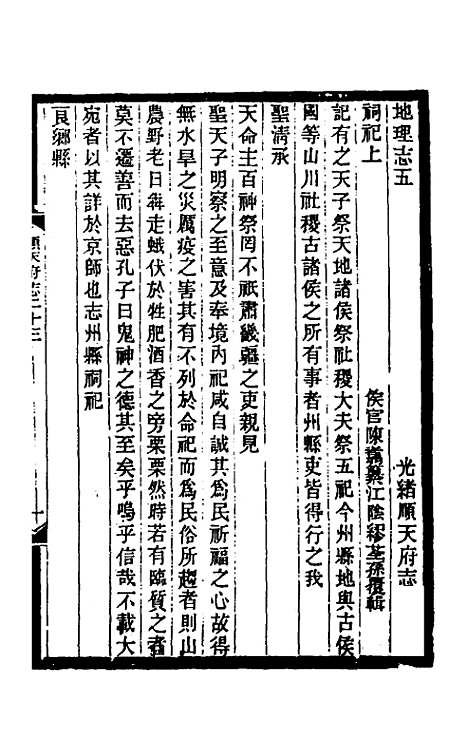 地理志五　光緒順天府志
祠祀上　侯官陳纂江陰繆荃孫覆輯
記有之天子祭天地諸侯祭社稷大夫祭五祀今州縣地與古侯
國等山川社稷古諸侯之所有事者州縣吏皆得行之我
聖淸承
天命主百神祭罔不祇肅畿疆之吏親見
聖天子明察之至意及奉境內祀咸自誠其爲民祈福之心故得
無水旱之災厲疫之害其有不列於命祀而爲民俗所趨者則山
農野老日犇走蛾伏於牲肥酒香之旁栗栗然時若有臨質之者
莫不遷善而去惡孔子曰鬼神之德其至矣乎嗚乎信哉不載大
宛者以其詳於京師也志州縣祠祀
良鄉縣
順天府志二十三
一